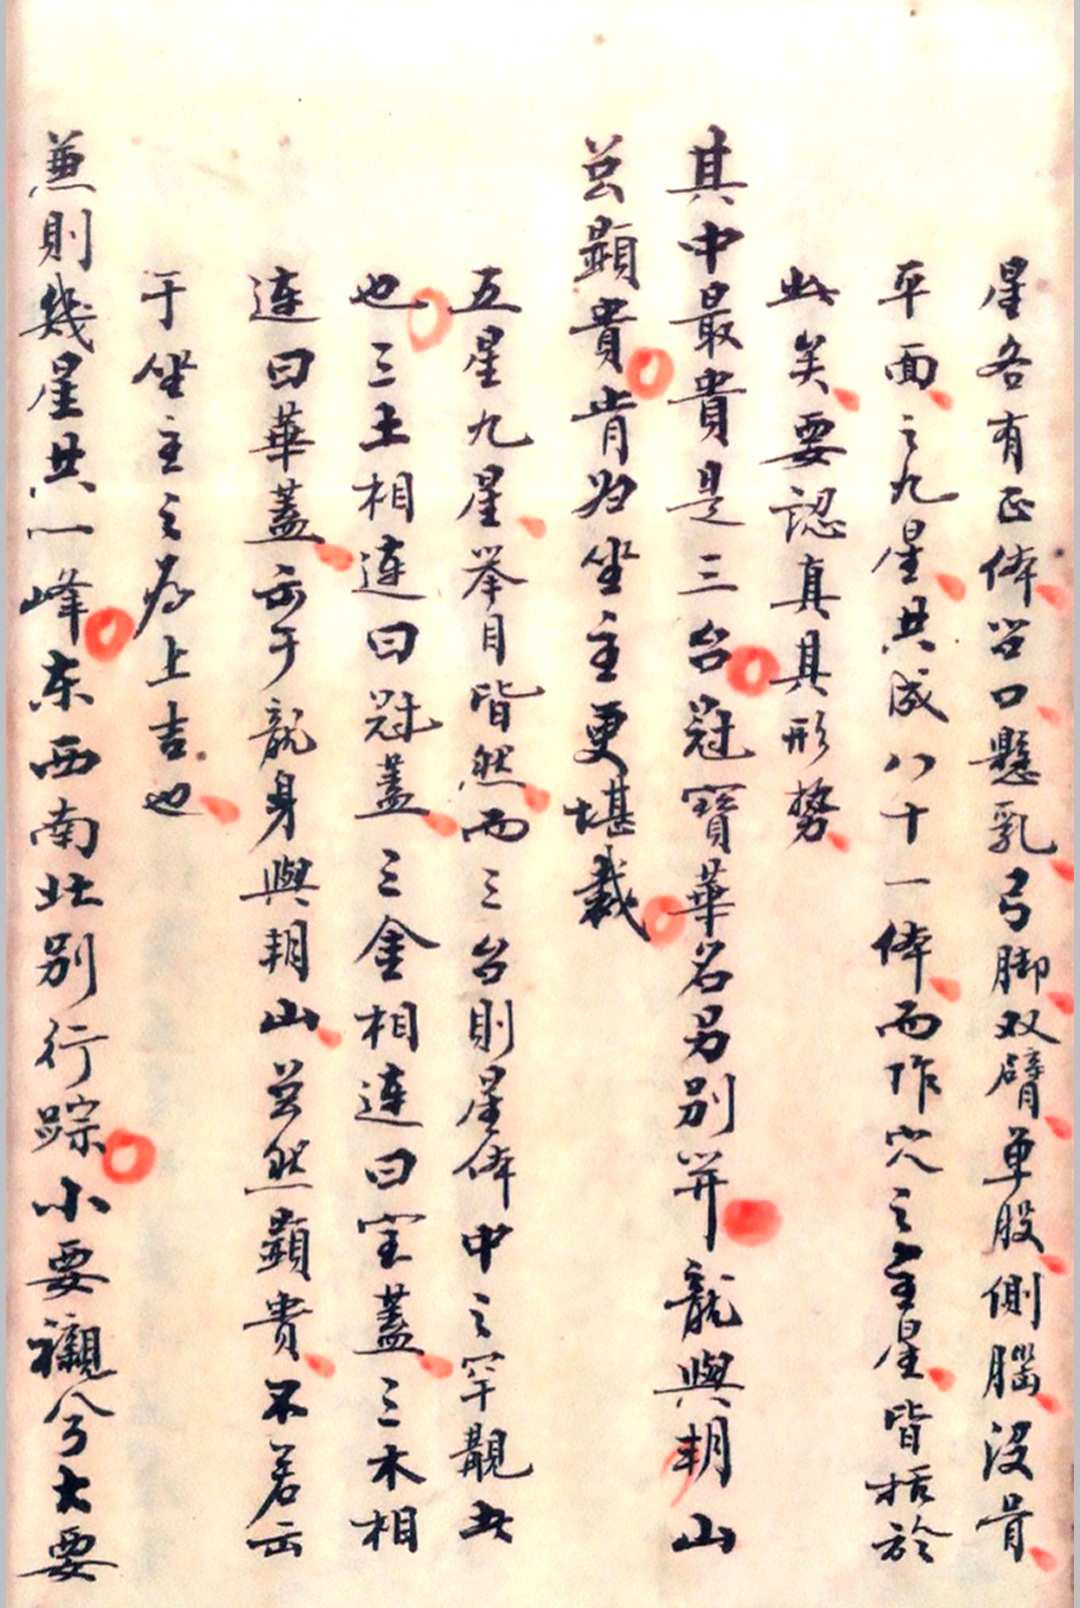 星各有正体咎口懸乳弓脚双臂单股側腦没骨
平面之九星共成八十一体而作穴之主星皆括於
此矣要認真具形势
其中最貴是三台冠寳華名另別并龍與朝山
並顯貴肯为坐主更堪裁
五星九星举目皆然而三台則星体中之罕觀此
也三土相連曰冠蓋三金相連曰宝蓋三木相
連曰華蓋出于龍身與朝山並然顯貴不若出
于坐主之为上吉也
兼則幾星共一峰东西南北別行踪小要襯兮大要